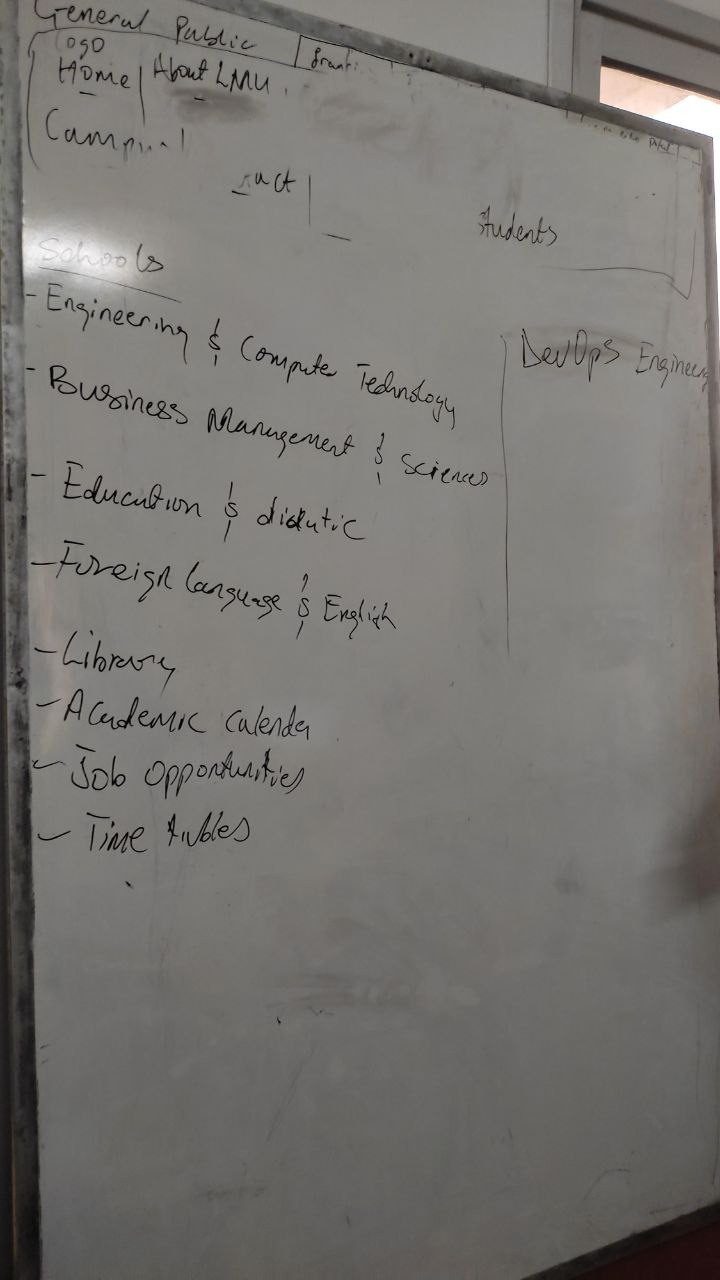 General Public
Logo
Home | About LMU
Students
Schools
- Engineering & Computer Technology
- Business Management & Sciences
- Education & didatic
- Foreign language & English
- Library
- Academic Calender
- Job Opportunities
- Time tables
DevOps Engineer